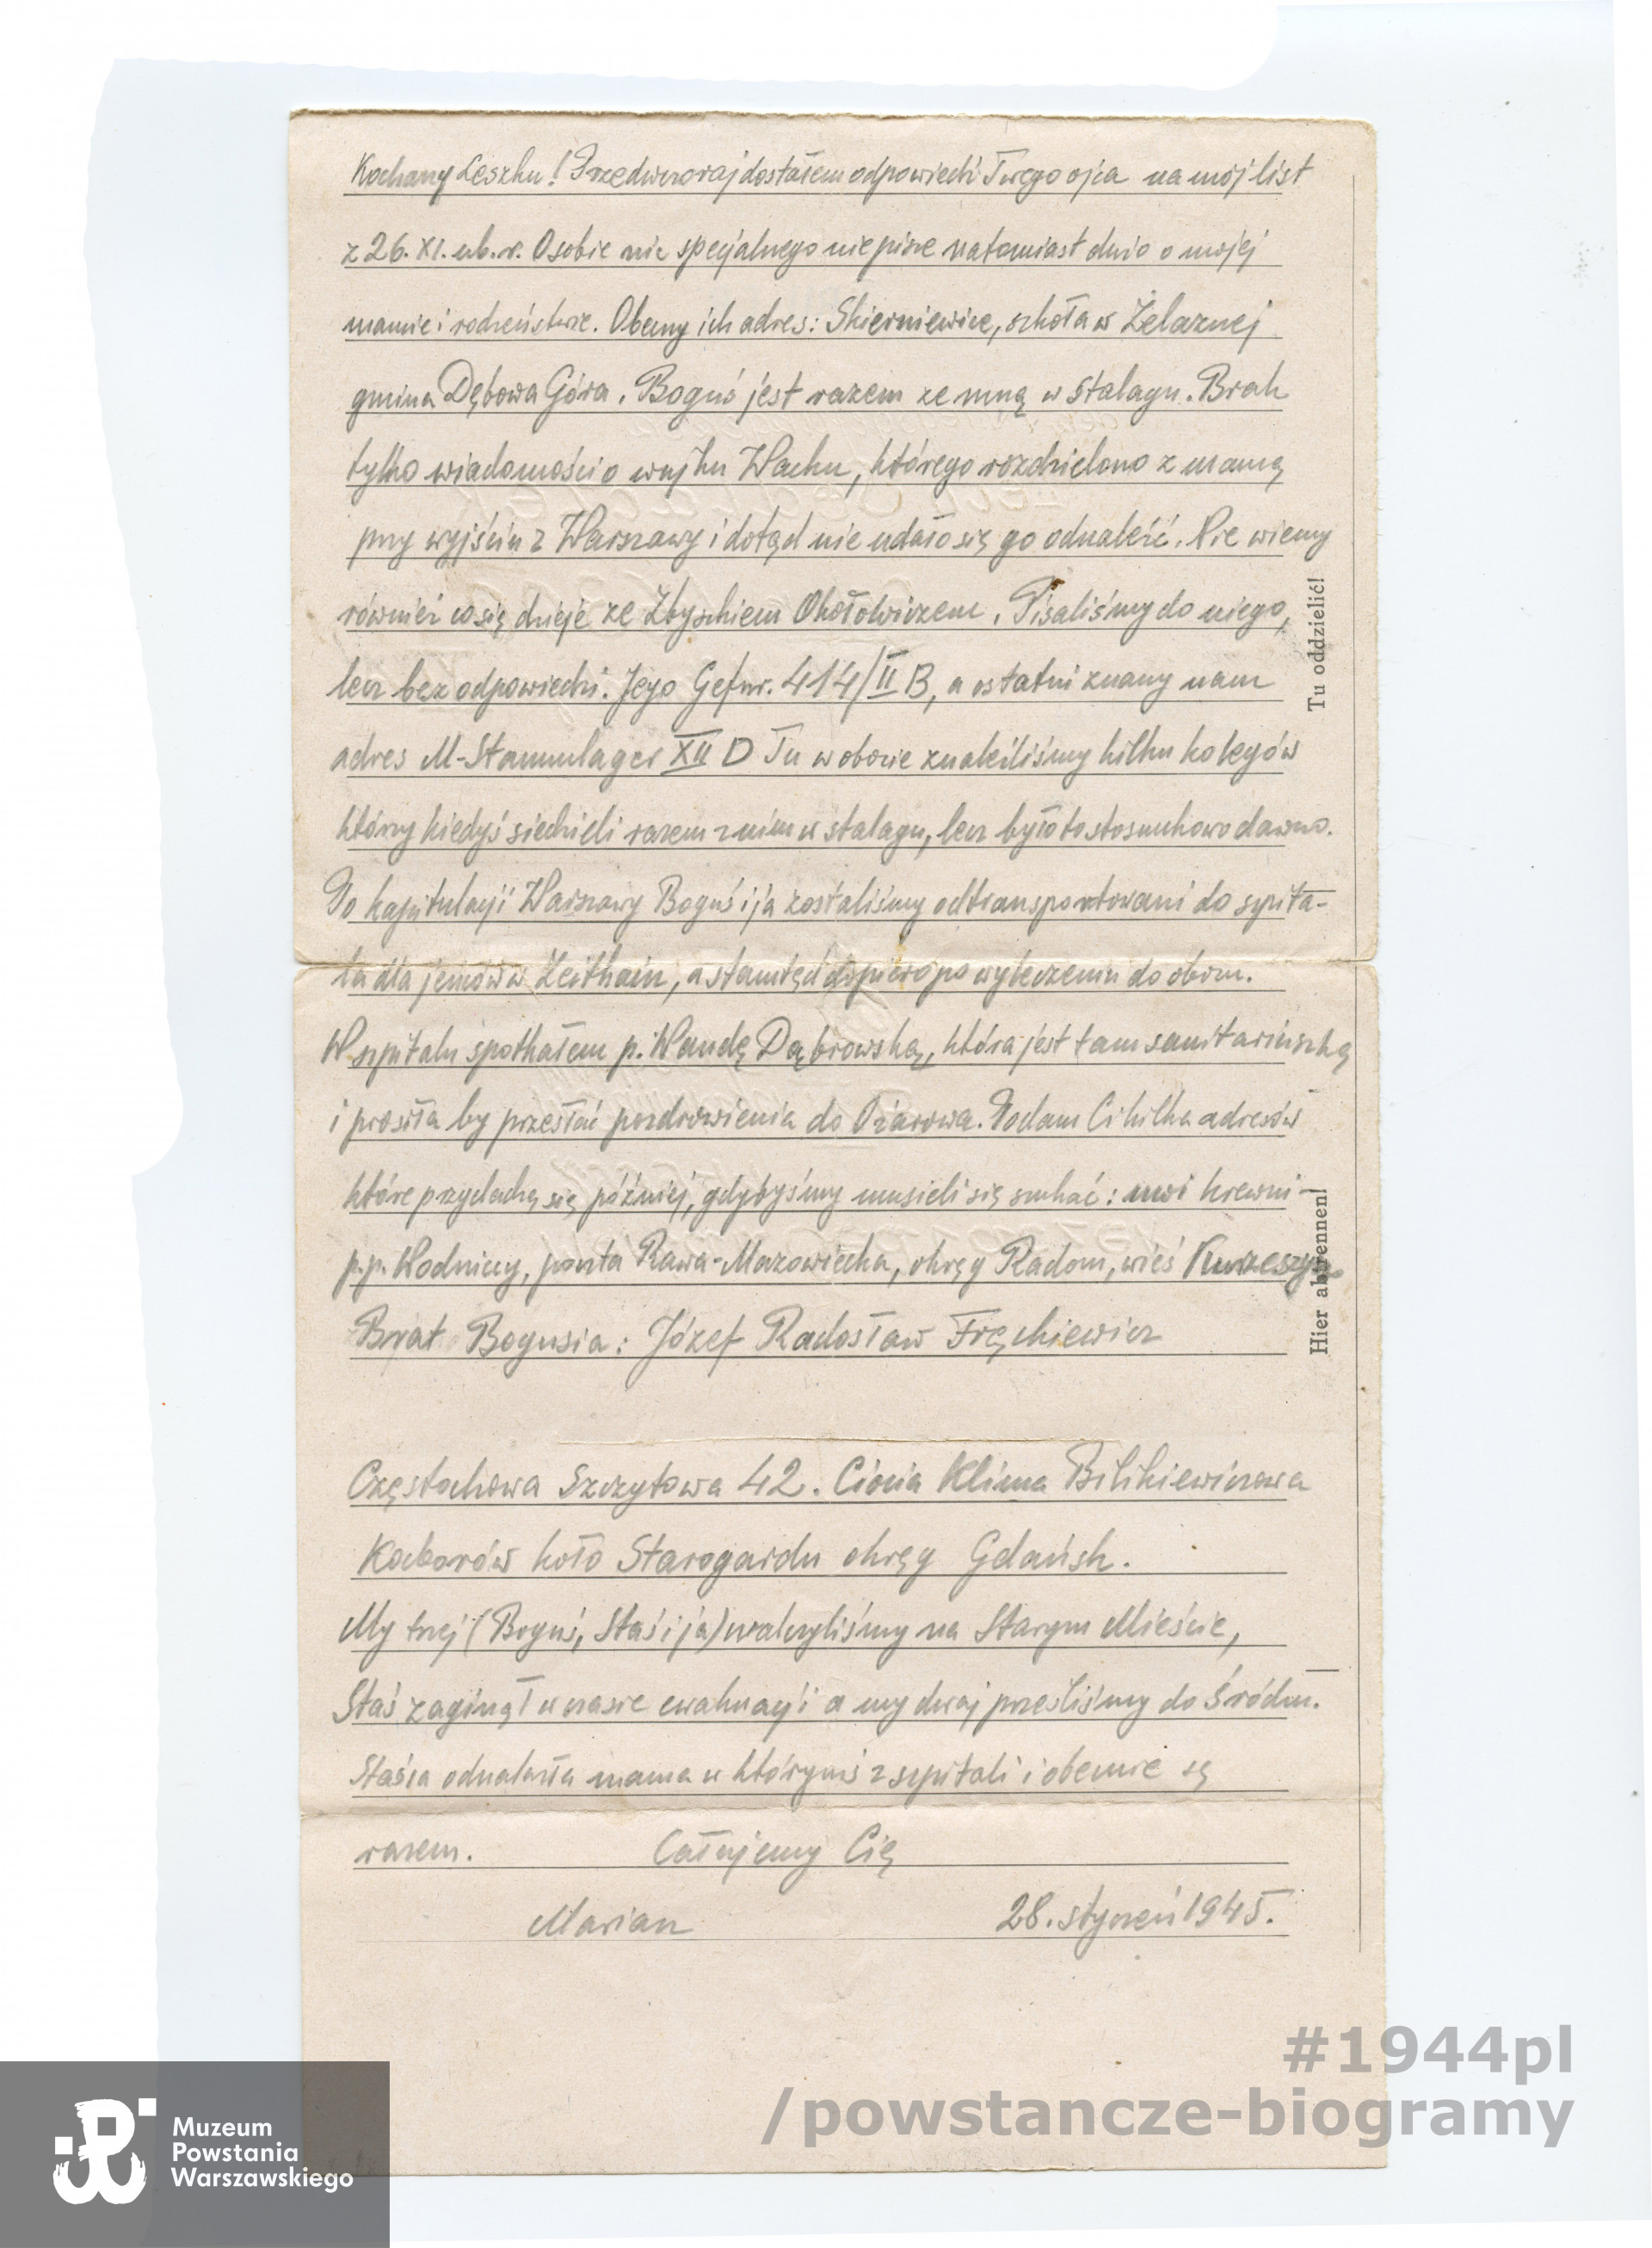 Kochany Leszku! Przedwczoraj dostałem odpowiedź Twego ojca na mój list
z 26. XI. ub. r. O sobie nic specjalnego nie pisze natomiast dużo o mojej
mamie i rodzeństwie. Obecny ich adres: Skierniewice, szkoła w Żelaznej
gmina Dębowa Góra. Boguś jest razem ze mną w stalagu. Brak
tylko wiadomości o wujku Wacku, którego rozdzielono z mamą
przy wyjściu z Warszawy i dotąd nie udało się go odnaleźć. Nie wiemy
również co się dzieje ze Zbyszkiem Okołowiczem. Pisaliśmy do niego,
lecz bez odpowiedzi. Jego Gef.nr. 414/II B, a ostatni znany nam
adres M-Stammlager XII D Tu w obozie znaleźliśmy kilku kolegów
którzy kiedyś siedzieli razem z nim w stalagu, lecz było to stosunkowo dawno.
Po kapitulacji Warszawy Boguś i ja zostaliśmy odtransportowani do szpita-
la dla jeńców w Zeithain, a stamtąd dopiero po wyleczeniu do obozu.
W szpitalu spotkałem p. Wandę Dąbrowską, która jest tam sanitariuszką
i prosiła by przesłać pozdrowienia do Ożarowa. Podam Ci kilka adresów
które przydadzą się później, gdybyśmy musieli się szukać: moi krewni -
p.p. Wodniccy, poczta Rawa-Mazowiecka, okręg Radom, wieś Kurzeszyn
Brat Bogusia: Józef Radosław Frąckiewicz
Częstochowa Szczytowa 42. Ciocia Klima Bilikiewiczowa
Koborów koło Starogardu okręg Gdańsk.
My trzej (Boguś, Staś i ja) walczyliśmy na Starym Mieście,
Staś zaginął w czasie ewakuacji a my dwaj przeszliśmy do Śródm.
Stasia odnalazła mama w którymś z szpitali i obecnie są
razem. Całujemy Cię
Marian 28. styczeń 1945.
Tu oddzielić!
Hier abtrennen!
#1944pl
/powstancze-biogramy
Muzeum
Powstania
Warszawskiego